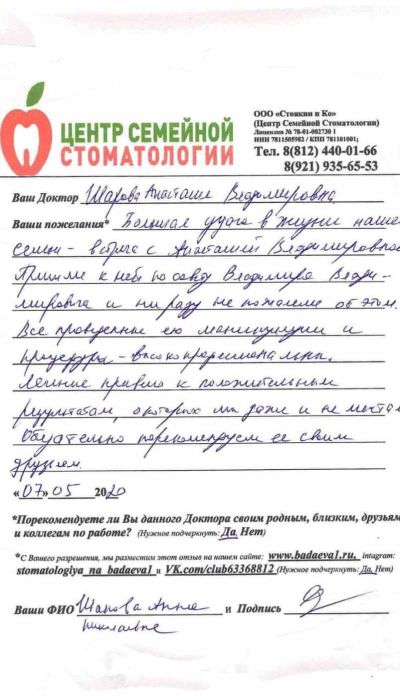 ЦЕНТР СЕМЕЙНОЙ
СТОМАТОЛОГИИ
ООО «Стоякин и Ко»
(Центр Семейной Стоматологии)
Лицензия № 78-01-002730 1
ИНН 7811505982 / КПП 781101001;
Тел. 8(812) 440-01-66
8(921) 935-65-53
Ваш Доктор Шарова Анастасия Владимировна
Ваши пожелания* Большая удача в жизни наше
семьи - встреча с Анастасией Владимировной
Пришли к ней по совету Владимира Влади-
мировича и ни разу не пожалели об этом.
Все проведенные ею манипуляции и
процедуры - высокопрофессиональны.
Лечение привело к положительным
результатам, о которых мы даже и не мечтал
Обязательно порекомендуем ее своим
друзьям.
«07» 05 2020
*Порекомендуете ли Вы данного Доктора своим родным, близким, друзьям
и коллегам по работе? (Нужное подчеркнуть: Да, Нет)
*С Вашего разрешения, мы разместим этот отзыв на нашем сайте: www.badaeva1.ru, intagram:
stomatologiya_na_badaeva1 и VK.com/club63368812 (Нужное подчеркнуть: Да, Нет)
Ваши ФИО Шарова Анна и Подпись
Николаевна